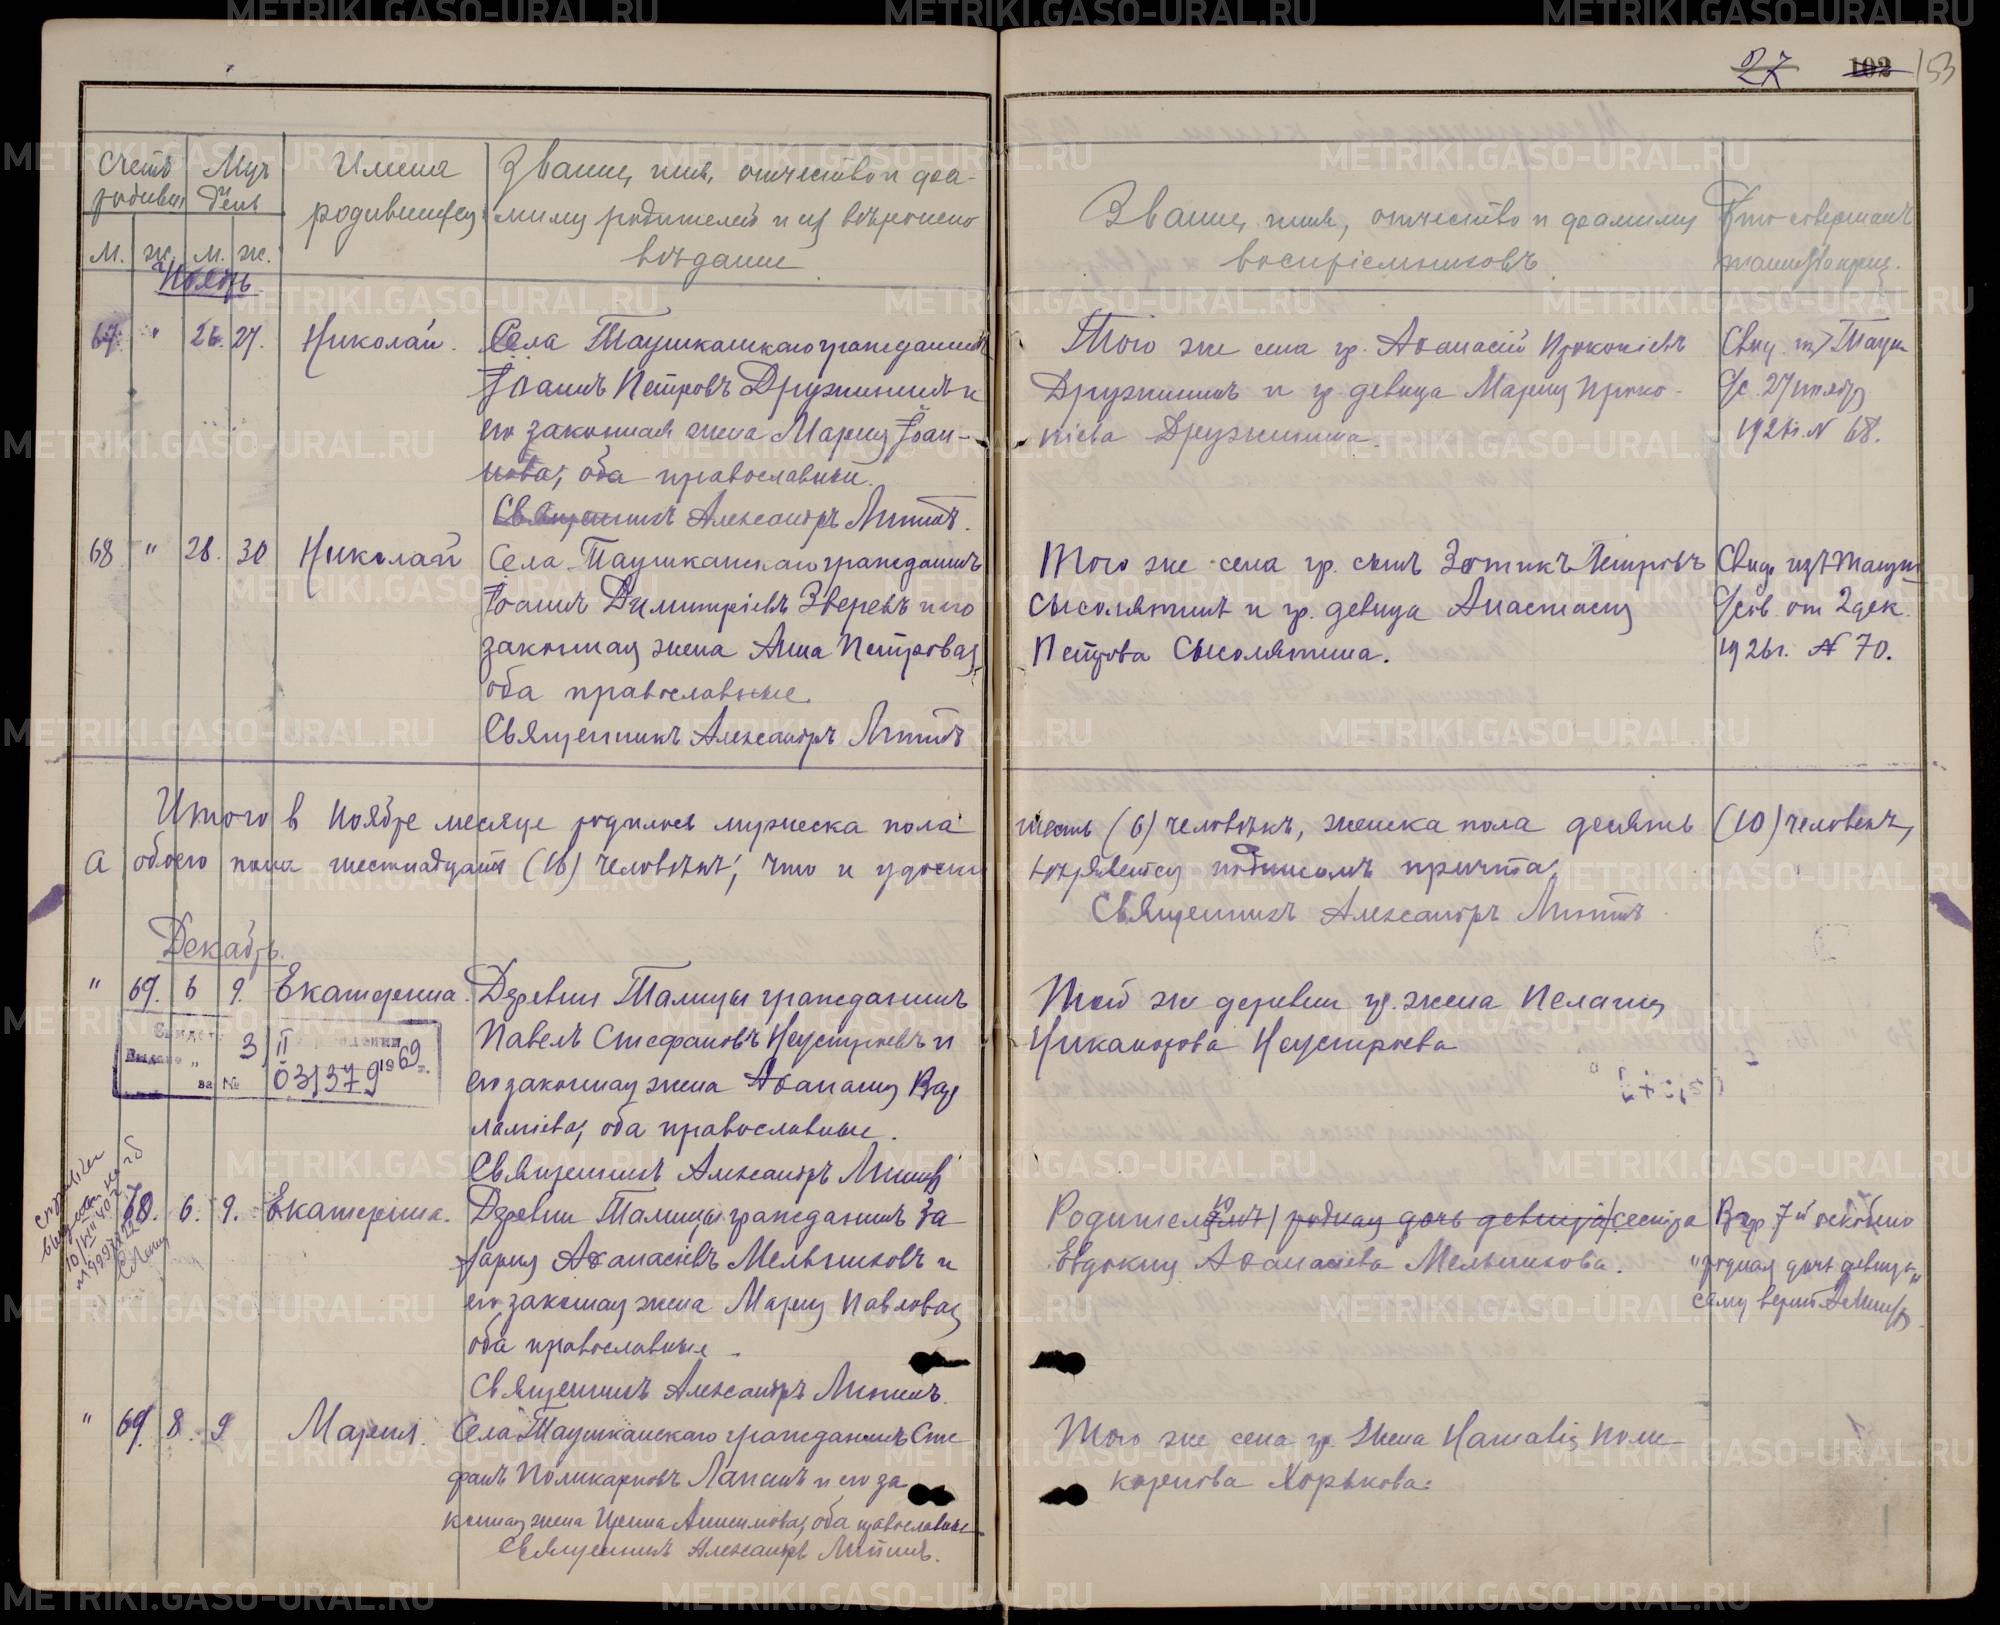 27 102 153
Счетъ родивш. Мцъ День Имена родившихся Званіе, имя, отчество и фа-
милія родителей и их вѣроиспо
вѣданіе
м. ж. м. ж.
Званіе, имя, отчество и фамилия
воспріемниковъ
Кто совершалъ
таинство крещ.
Ноябрь
67. " 26. 27. Николай. Села Таушканскаго гражданинъ
Іоаннъ Петровъ Дружининъ и
его законная жена Мария Іоан-
нова, оба православныи.
Священникъ Александръ
Того же села гр. Аѳанасій Прокопіевъ
Дружининъ и гр. девица Мария Проко-
піева Дружинина.
Свид. Тауш
с/с. 27 ноября
1926г. N 68.
68 " 28. 30 Николай Села Таушканскаго гражданинъ
Іоаннъ Димитріевъ Зверевъ и его
законная жена Анна Петровая
оба православные.
Священникъ Александръ
Того же села гр. сынъ Зотикъ Петровъ
Сысолятинъ и гр. девица Анастасия
Петрова Сысолятина.
Свид. изъ Тауш
с/сов. от 2 дек.
1926г. N 70.
Итого в Ноябре месяце родилось мужеска пола шесть (6) человѣкъ, женска пола десять (10) человекъ,
А обоего пола шестнадцать (16) человѣкъ, что и удосто товряется подписомъ причта,
Священникъ Александръ
Декабрь.
" 69. 6 9. Екатерина. Деревни Талицы гражданинъ
Павелъ Стефановъ Неустроевъ и
его законная жена Аѳанасия Вар
ламіева, оба православные.
Священникъ Александръ
Той же деревни гр. жена Пелагия
Никанорова Неустроева
Выдано " 3 II 1969
за № 031379
70. 6. 9. Екатерина. Деревни Талицы гражданинъ За
хария Аѳанасіевъ Мельниковъ и
его законная жена Мария Павловая
оба православныя
Священникъ Александръ
родная дочь девица сестра
Евдокия Аѳанасіева Мельникова.
В гр. 7й оскоблено
"родная дочь девица"
сему верить
" 69. 8. 9 Мария. Села Таушканскаго гражданинъ Сте
фанъ Поликарповъ Лапинъ и его за
конная жена Ирина Анисимовая, оба православные
Священникъ Александръ
Того же села гр. жена Наталія Поли-
карпова Хорькова.
METRIKI.GASO-URAL.RU